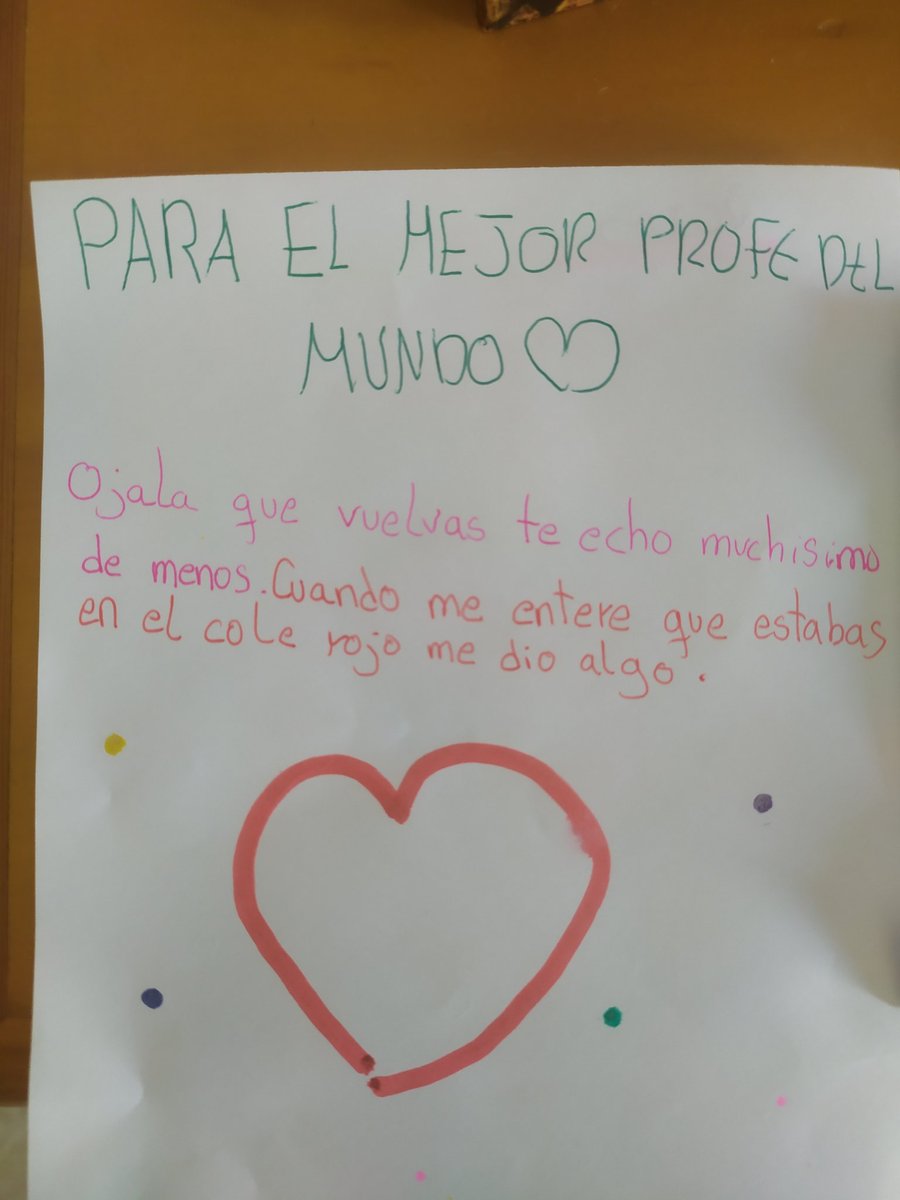 PARA EL MEJOR PROFE DEL
MUNDO
Ojala que vuelvas te echo muchisimo
de menos. Cuando me entere que estabas
en el cole rojo me dio algo.